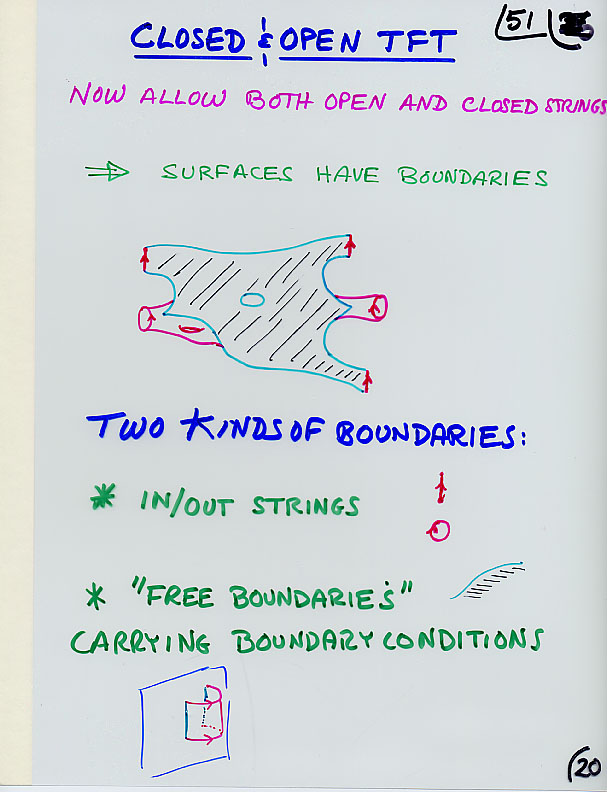 51
CLOSED & OPEN TFT
NOW ALLOW BOTH OPEN AND CLOSED STRINGS
⇒ SURFACES HAVE BOUNDARIES
TWO KINDS OF BOUNDARIES:
* IN/OUT STRINGS
* "FREE BOUNDARIES"
CARRYING BOUNDARY CONDITIONS
20